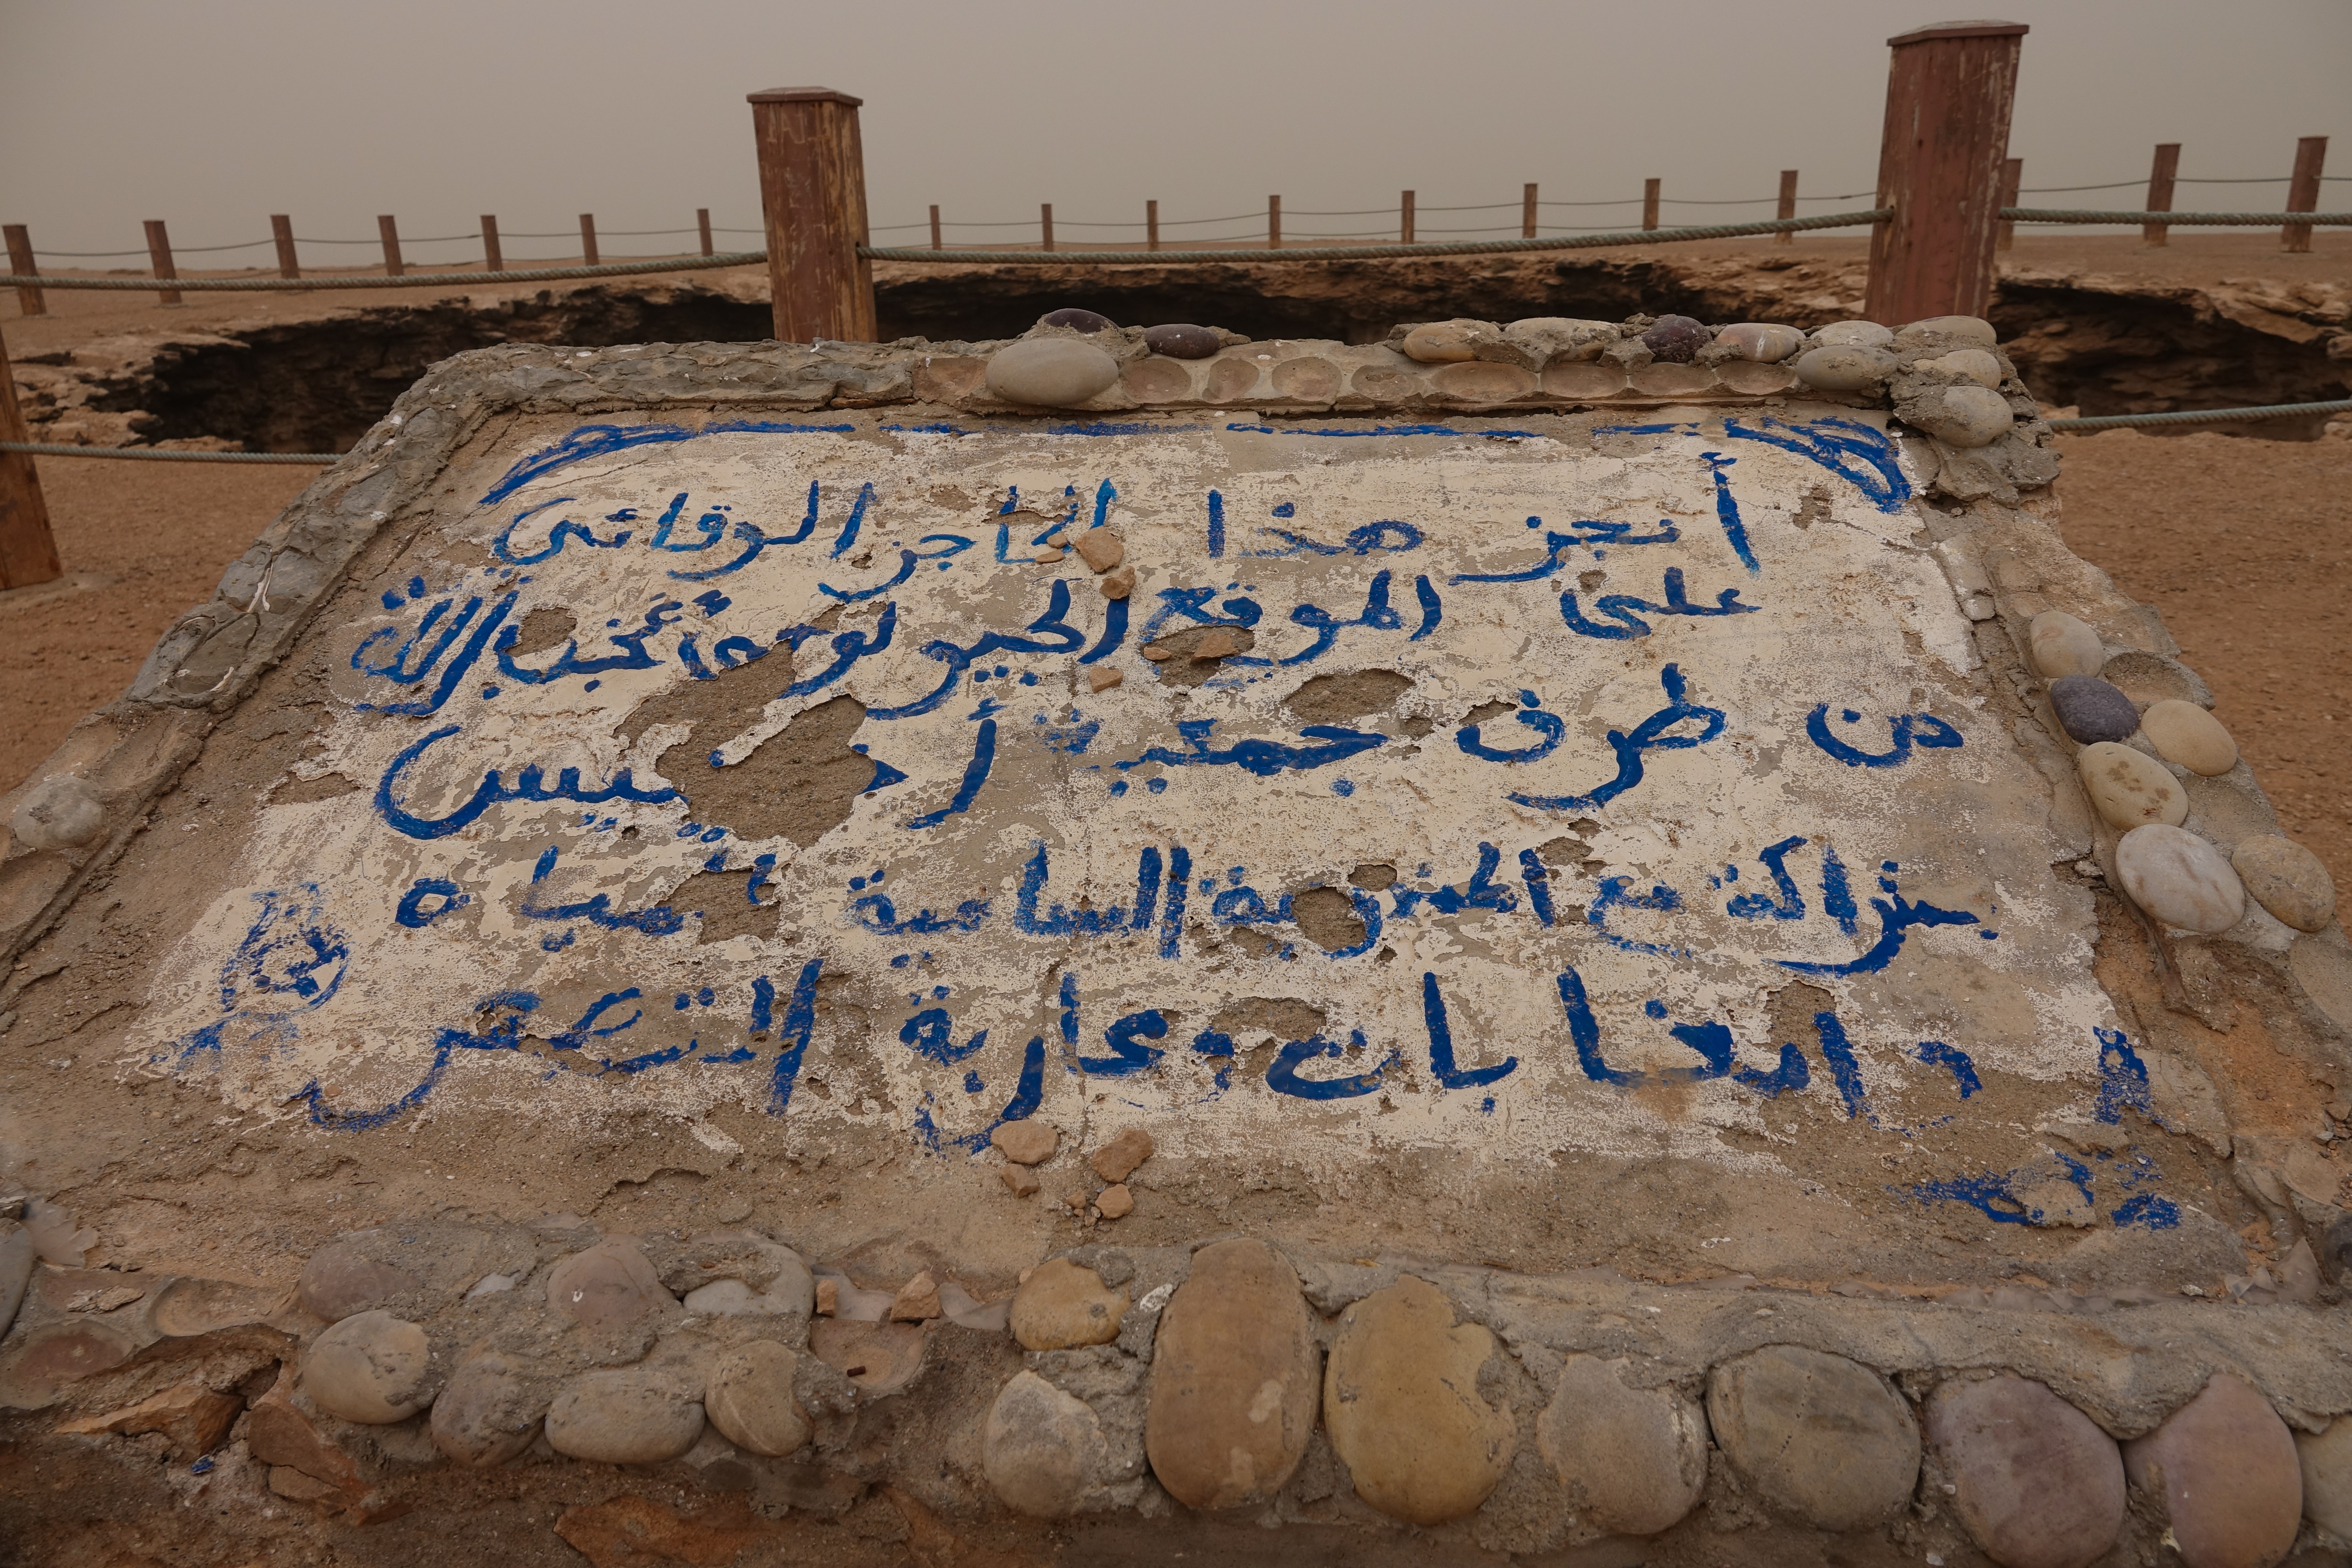 أنجز هذا الحاجز الوقائي
على الموقع الجيولوجي أجب الله
من طرف جمعية أخفنيس
بشراكة مع المندوبية السامية للمياه
و الغابات و محاربة التصحر